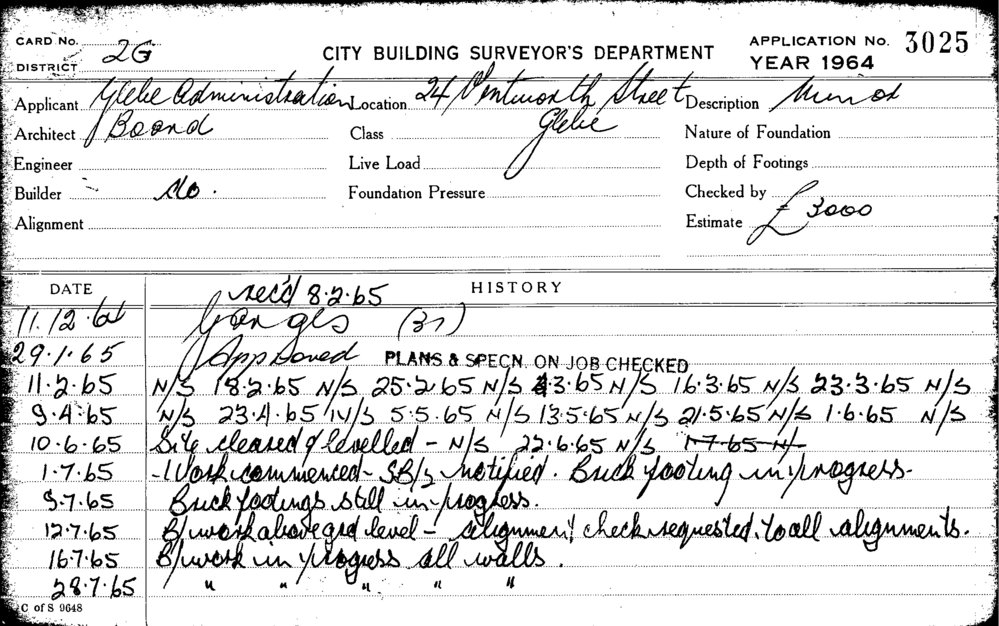 CARD No. 2G
DISTRICT
CITY BUILDING SURVEYOR'S DEPARTMENT
APPLICATION No. 3025
YEAR 1964
Applicant Glebe Administration Location 24 Wentworth Street Description Minor
Architect Board Class Glebe Nature of Foundation
Engineer Live Load Depth of Footings
Builder do. Foundation Pressure Checked by
Alignment Estimate £3000
DATE HISTORY
rec'd 8.2.65
11.12.64 Garages (37)
29.1.65 Approved PLANS & SPECN. ON JOB CHECKED
11.2.65 N/S 18.2.65 N/S 25.2.65 N/S 4.3.65 N/S 16.3.65 N/S 23.3.65 N/S
9.4.65 N/S 23.4.65 N/S 5.5.65 N/S 13.5.65 N/S 21.5.65 N/S 1.6.65 N/S
10.6.65 Site cleared & levelled - N/S 22.6.65 N/S 1.7.65 N/
1.7.65 - Work commenced - SB/s notified. Brick footing in progress-
9.7.65 Brick footings still in progress.
12.7.65 B/work above grd level - alignment check requested. to all alignments.
16.7.65 B/work in progress all walls.
28.7.65 " " " " "
C of S 9648